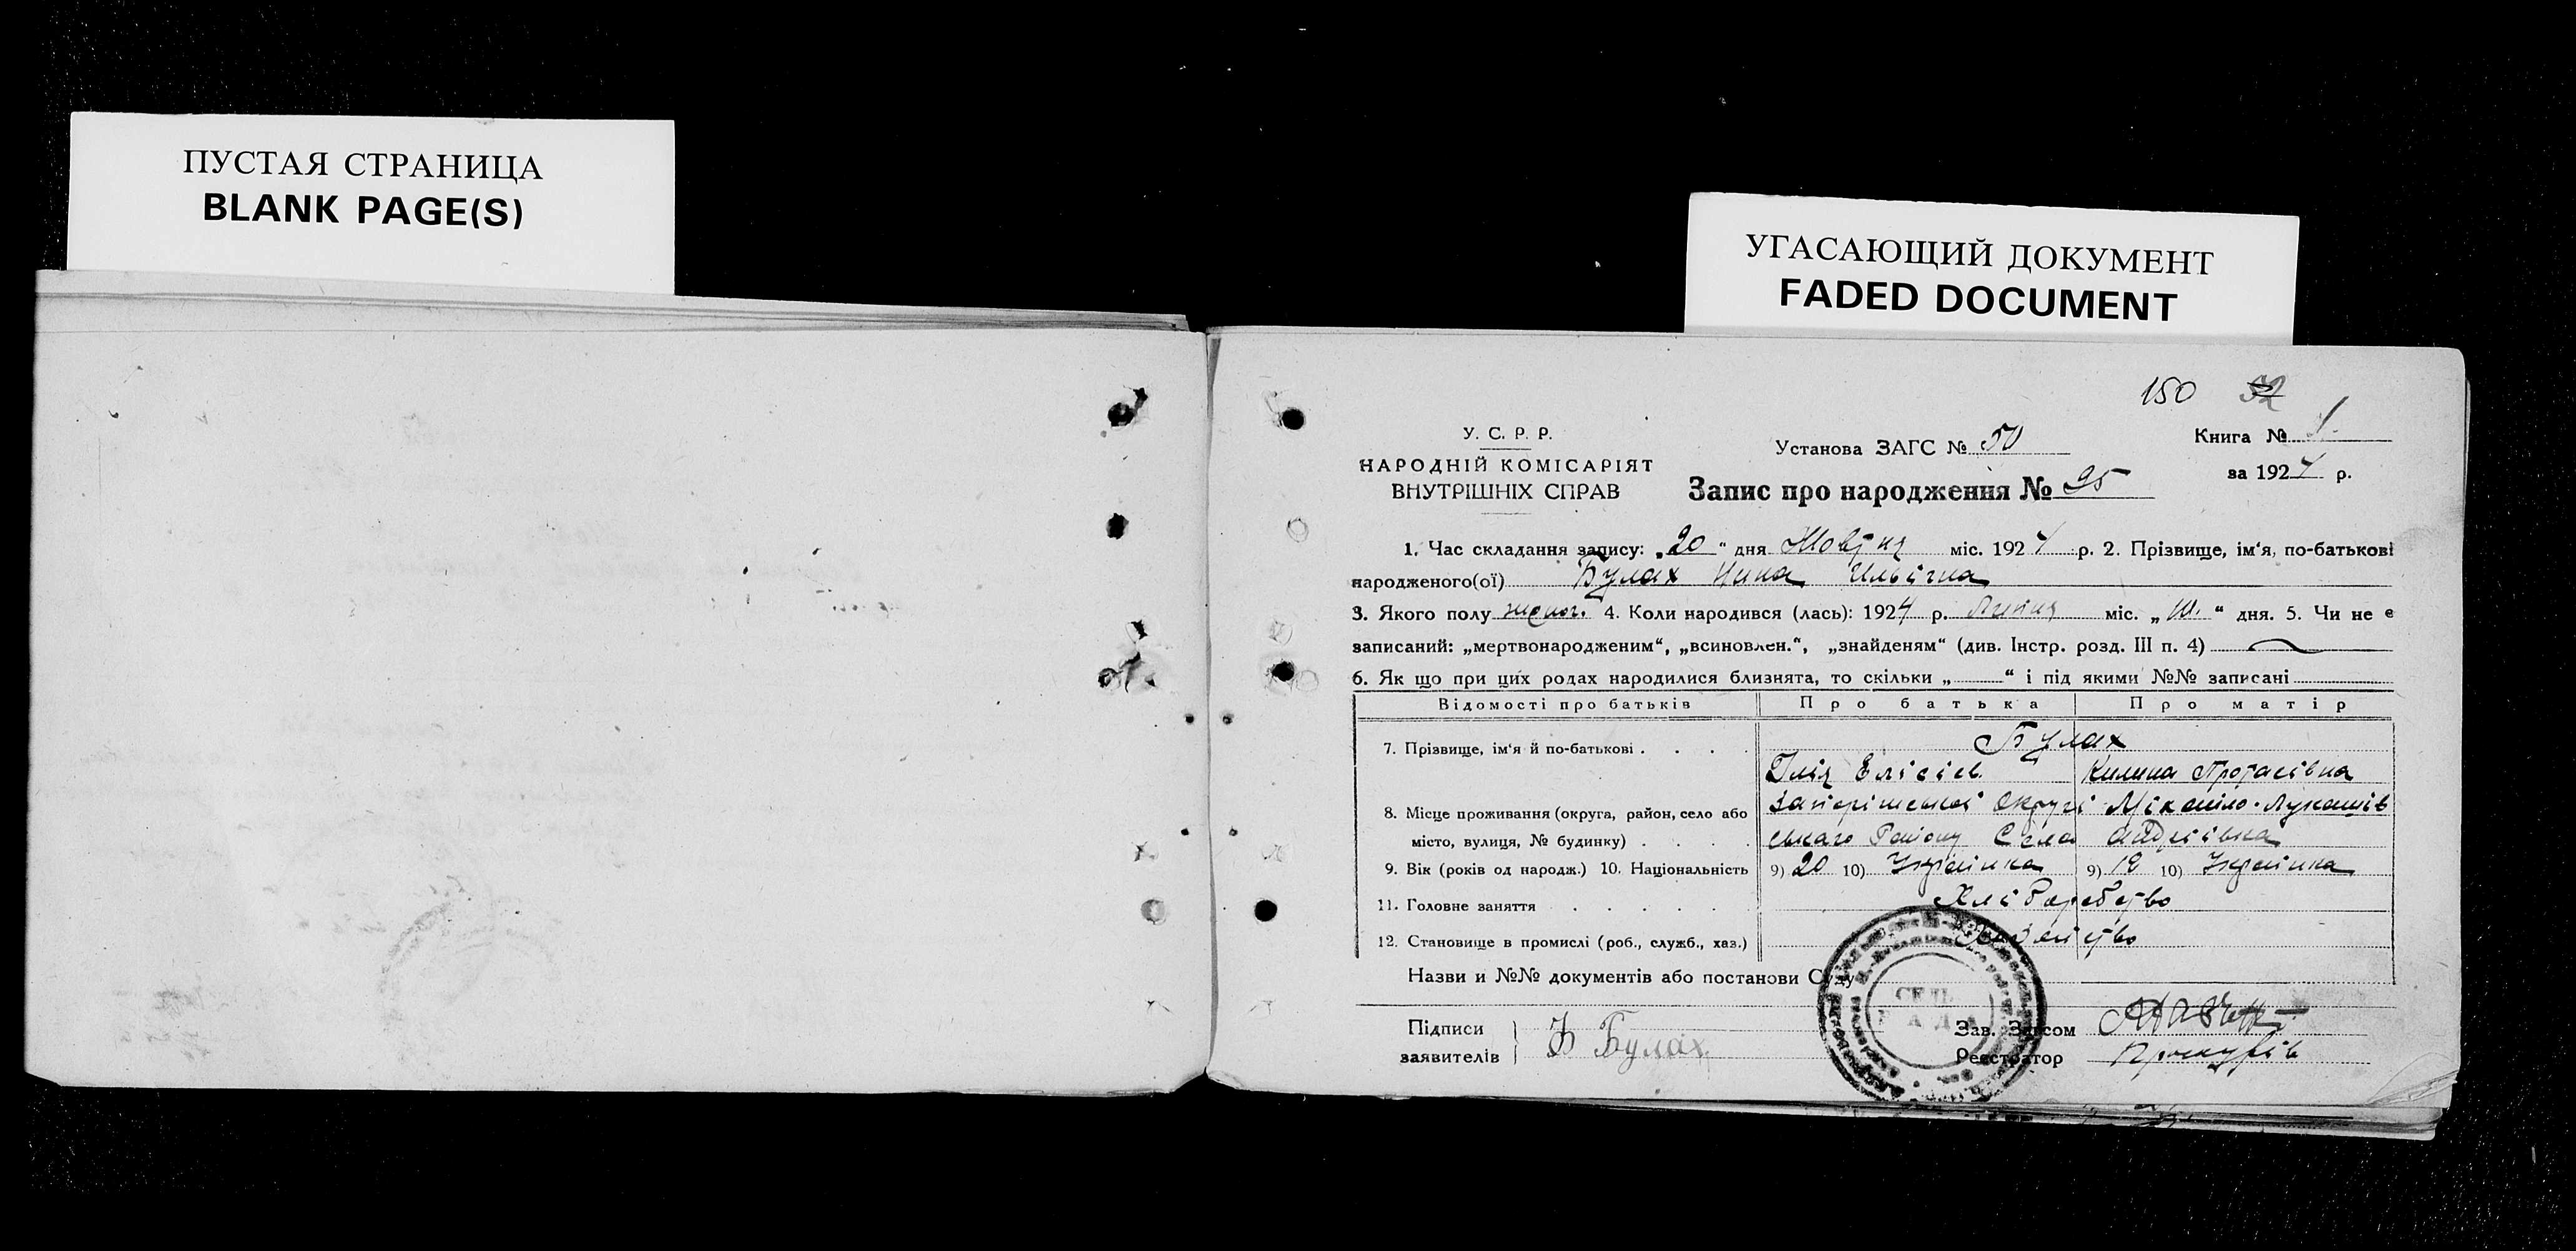 ПУСТАЯ СТРАНИЦА
BLANK PAGE(S)
УГАСАЮЩИЙ ДОКУМЕНТ
FADED DOCUMENT
150 52
У. С. Р. Р.
НАРОДНІЙ КОМІСАРІЯТ
ВНУТРІШНІХ СПРАВ
Установа ЗАГС № 50
Запис про народження № 95
Книга № 1
за 1924 р.
1. Час складання запису: „20“ дня Жовтня міс. 1924 р. 2. Прізвище, ім‘я, по-батькові
народженого(ої) Булах Нина Ильїчна
3. Якого полу жіноч. 4. Коли народився (лась): 1924 р. Липня міс. „10.“ дня. 5. Чи не є
записаний: „мертвонародженим“, „всиновлен.“, „знайденям“ (див. Інстр. розд. III п. 4)
6. Як що при цих родах народилися близнята, то скільки „ “ і під якими №№ записані
Відомості про батьків Про батька Про матір
7. Прізвище, ім‘я й по-батькові . . . . Булах
Ілія Елісієв. Килина Протасівна
8. Місце проживання (округа, район, село або Запоріжської Округи Міхайло-Лукашів
місто, вулиця, № будинку) . . . . ського Району Села Андріївка
9. Вік (років од народж.) 10. Національність 9) 20 10) Українка 9) 19 10) Українка
11. Головне заняття . . . . . . Хліборобство
12. Становище в промислі (роб., служб., хаз.)
Назви и №№ документів або постанови Суду
СЕЛЬ
РАДА
Підписи
заявителів Булах
Зав. Загсом
Реєстратор